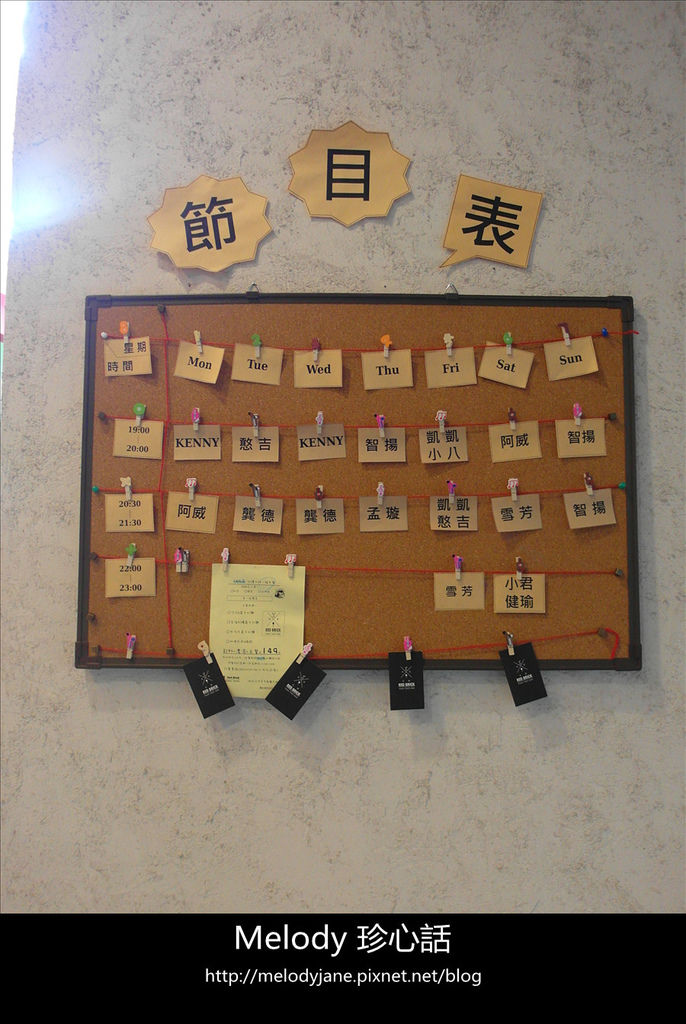 節 目 表
星期
時間
Mon Tue Wed Thu Fri Sat Sun
19:00
20:00
KENNY 憨吉 KENNY 智揚 凱凱 小八 阿威 智揚
20:30
21:30
阿威 龔德 龔德 孟璇 凱凱 憨吉 雪芳 智揚
22:00
23:00
雪芳 小君 健瑜
149
RED BRICK
RED BRICK
RED BRICK
RED BRICK
RED BRICK
Melody 珍心話
http://melodyjane.pixnet.net/blog